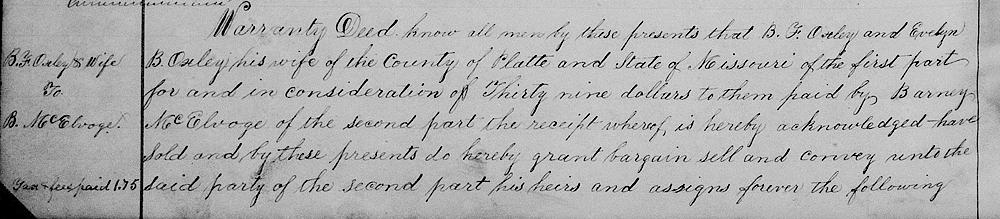 Warranty Deed. Know all men by these presents that B. F. Oxley and Evelyn
B. F. Oxley & Wife
B. Oxley his wife of the County of Platte and State of Missouri of the first part
To
for and in consideration of Thirty nine dollars to them paid by Barney
B. McElvoge.
McElvoge of the second part the receipt whereof, is hereby acknowledged - have
Sold and by these presents do hereby grant bargain sell and convey unto the
Tax & fees paid 1.75
Said party of the second part his heirs and assigns forever the following